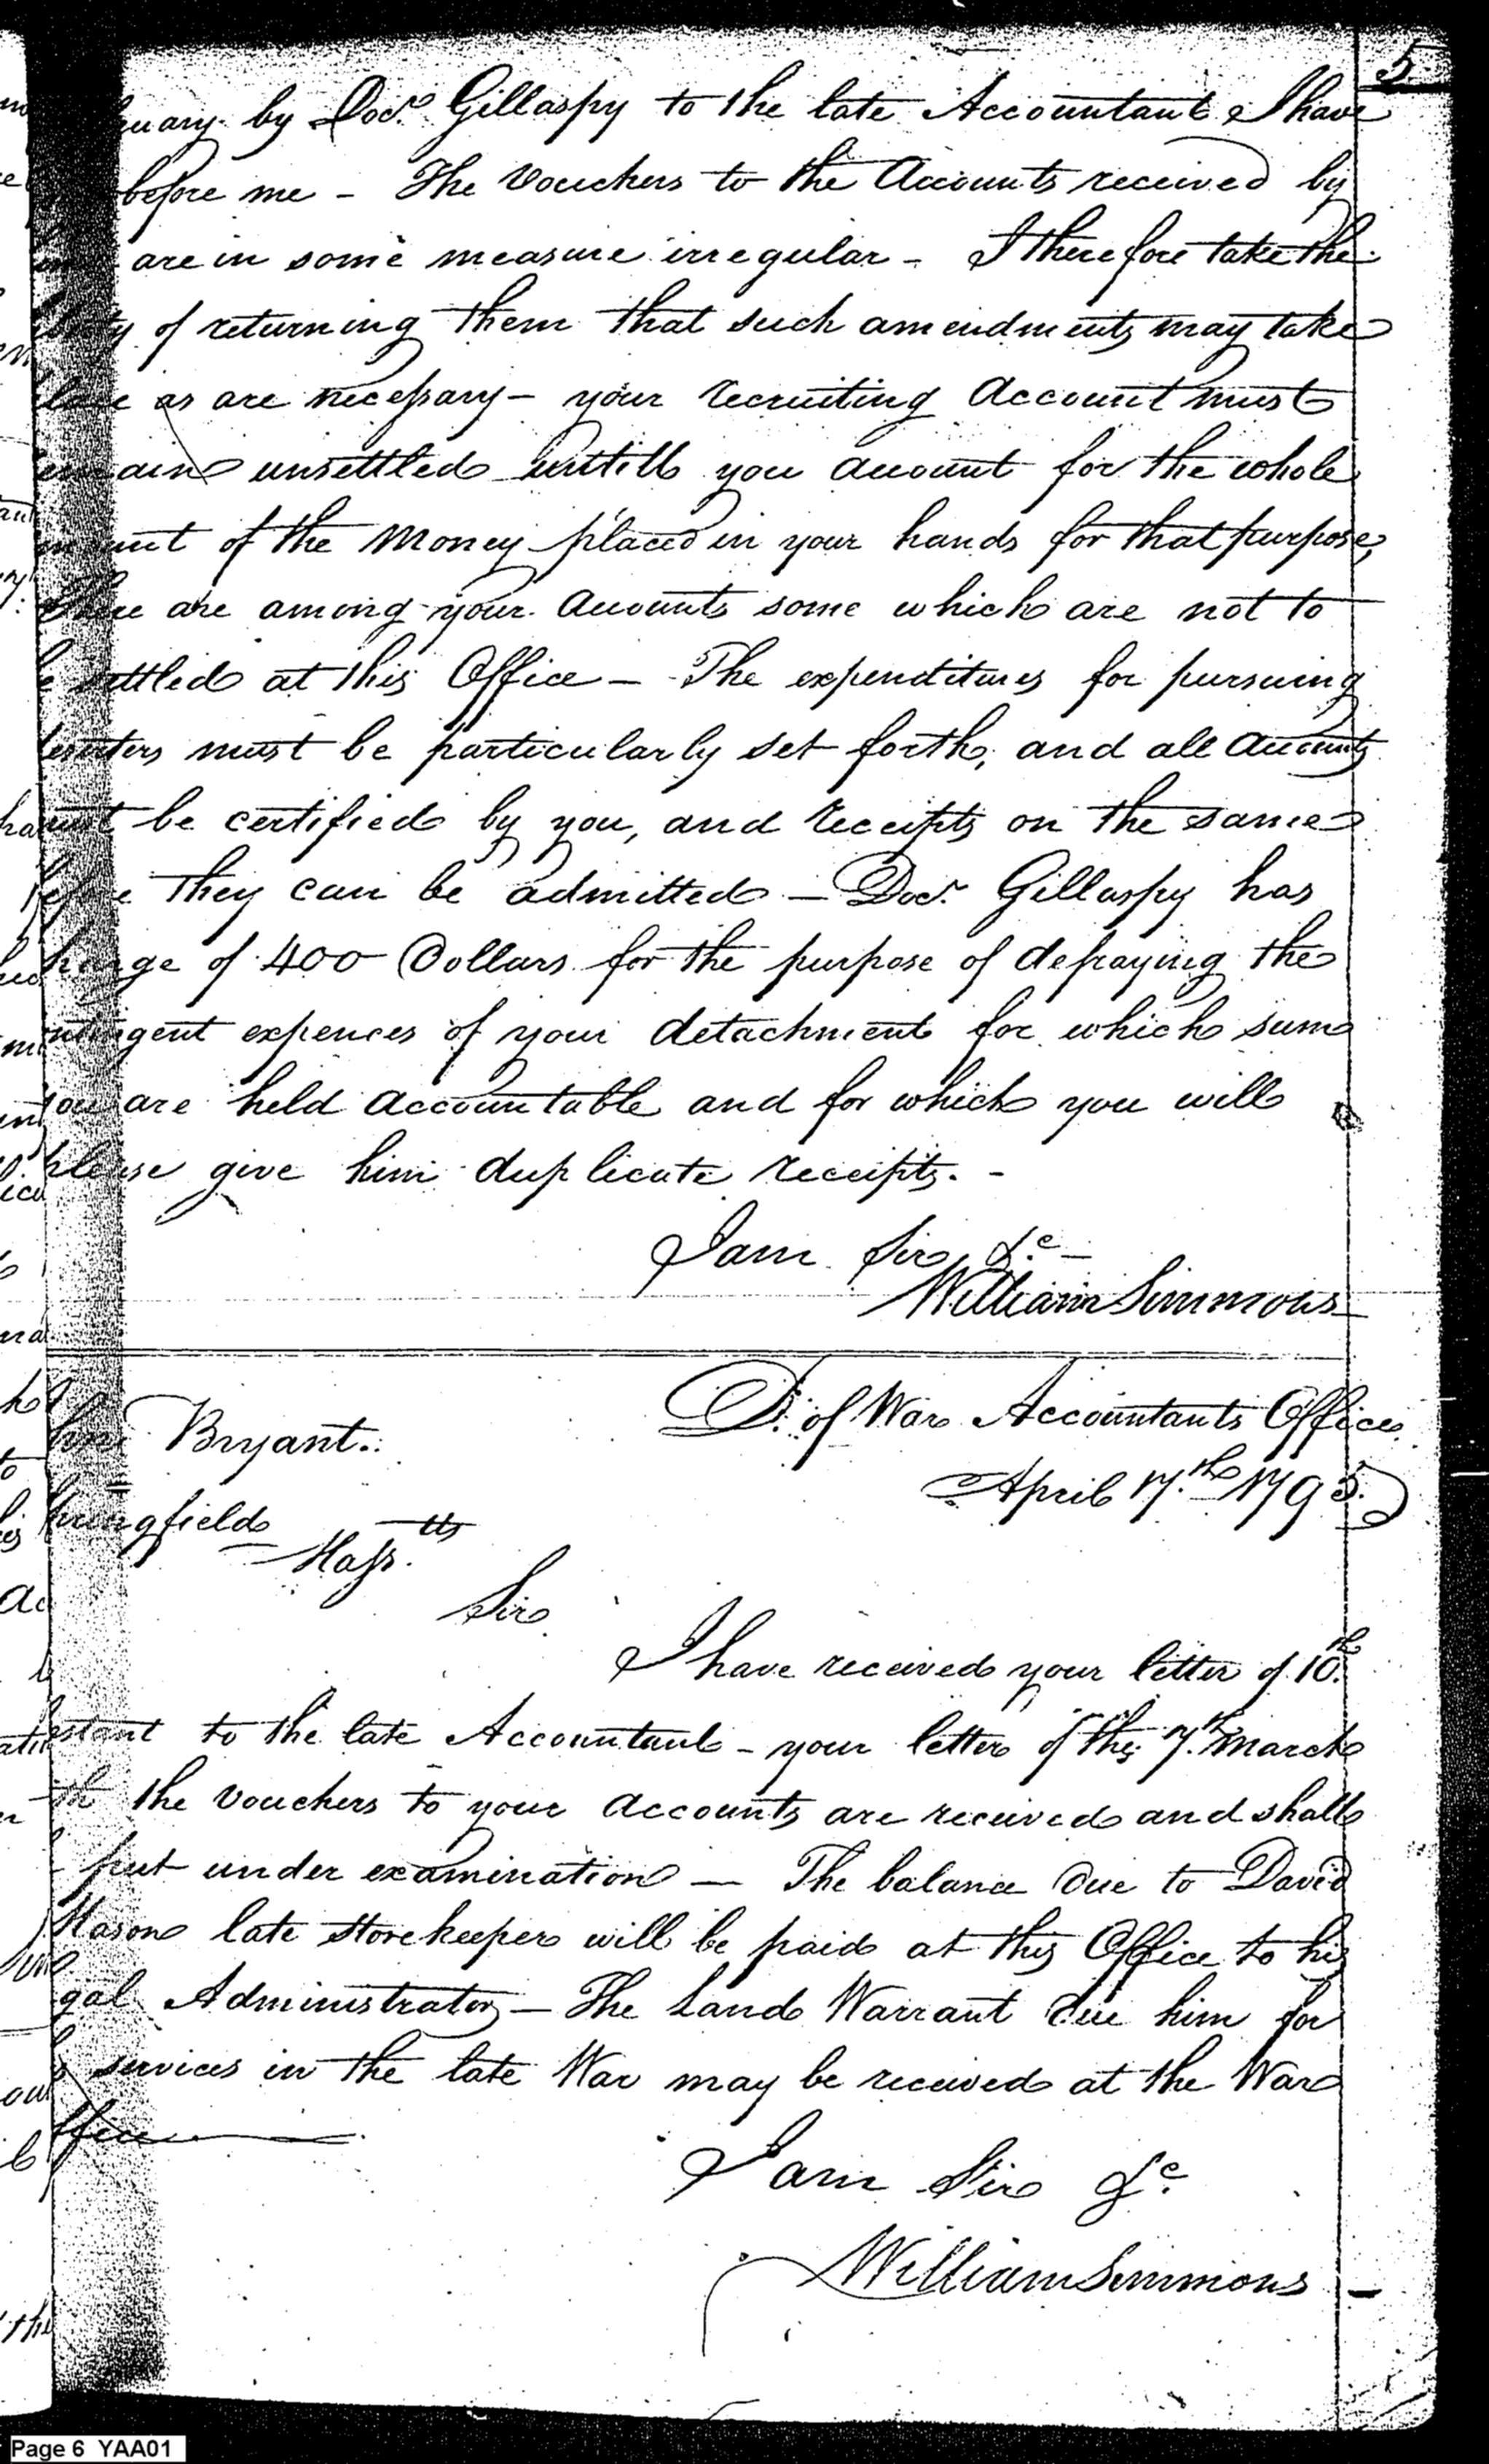 5
uary by Docr. Gillaspy to the late Accountant I have
before me - The Vouchers to the Accounts received by
are in some measure irregular - I therefore take the
ty of returning them that such amendments may take
place as are necessary - your recruiting Account must
emain unsettled untill you account for the whole
amount of the Money placed in your hands for that purpose,
There are among your Accounts some which are not to
be settled at this Office - The expenditures for pursuing
deserters must be particularly set forth, and all Accounts
must be certified by you, and receipts on the same
before they can be admitted - Docr. Gillaspy has
charge of 400 Dollars for the purpose of defraying the
ntingent expences of your detachment for which sum
you are held accountable and for which you will
please give him duplicate receipts. -
I am Sir &c -
William Simmons
D. of War Accountants Office
Bryant.
April 17.th 1795.
Springfield
Mass.tts
Sir
I have received your letter of 10.th
Instant to the late Accountant - your letter of the 7.th March
th the Vouchers to your accounts are received and shall
put under examination - The balance due to David
Mason late Storekeeper will be paid at this Office to his
gal Administrator - The Land Warrant due him for
services in the late War may be received at the War
ffice
I am Sir &c.
William Simmons
Page 6 YAA01